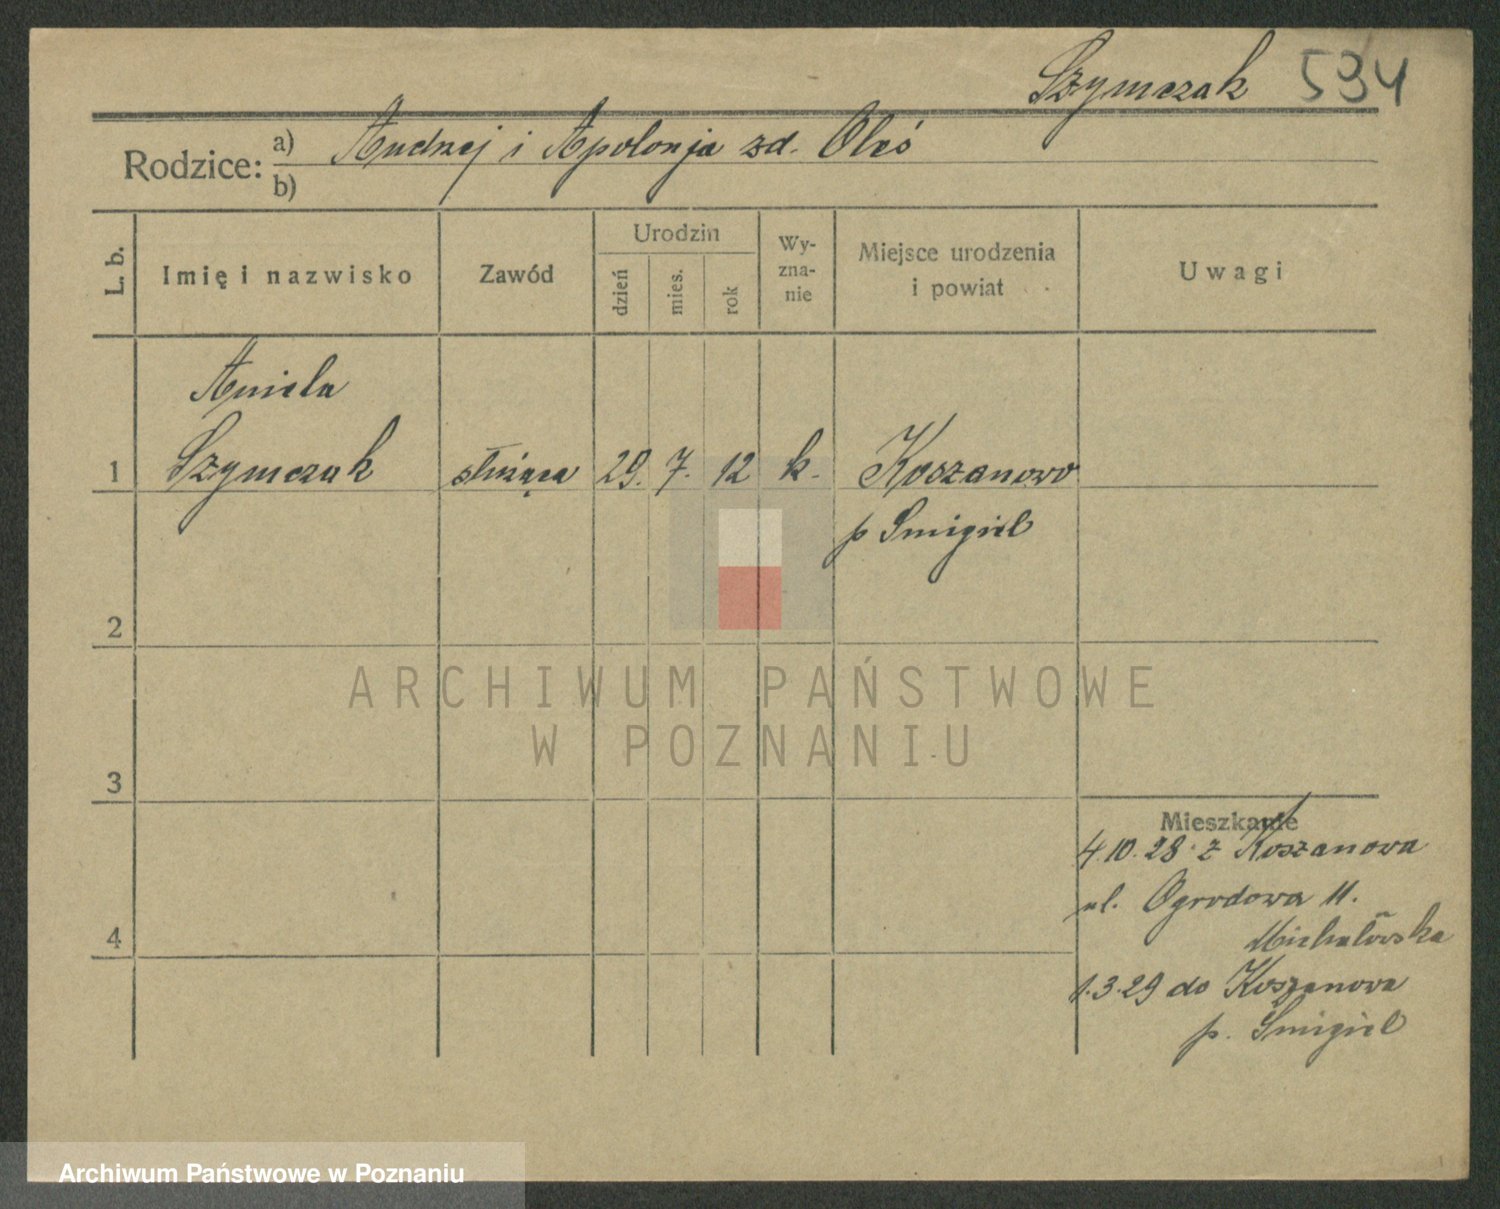 Szymczak 534
Rodzice: a) Andrzej i Apolonja zd. Oleś
b)
L. b. Imię i nazwisko Zawód Urodzin dzień mies. rok Wy-zna-nie Miejsce urodzenia i powiat Uwagi
Aniela
1 Szymczak służąca 29. 7. 12 k. Koszanowo
p Śmigiel
2
ARCHIWUM PAŃSTWOWE
W POZNANIU
3
Mieszkanie
4.10.28 z Koszanowa
ul. Ogrodowa 11.
4 Michałowska
1.3.29 do Koszanowa
p. Śmigiel
Archiwum Państwowe w Poznaniu